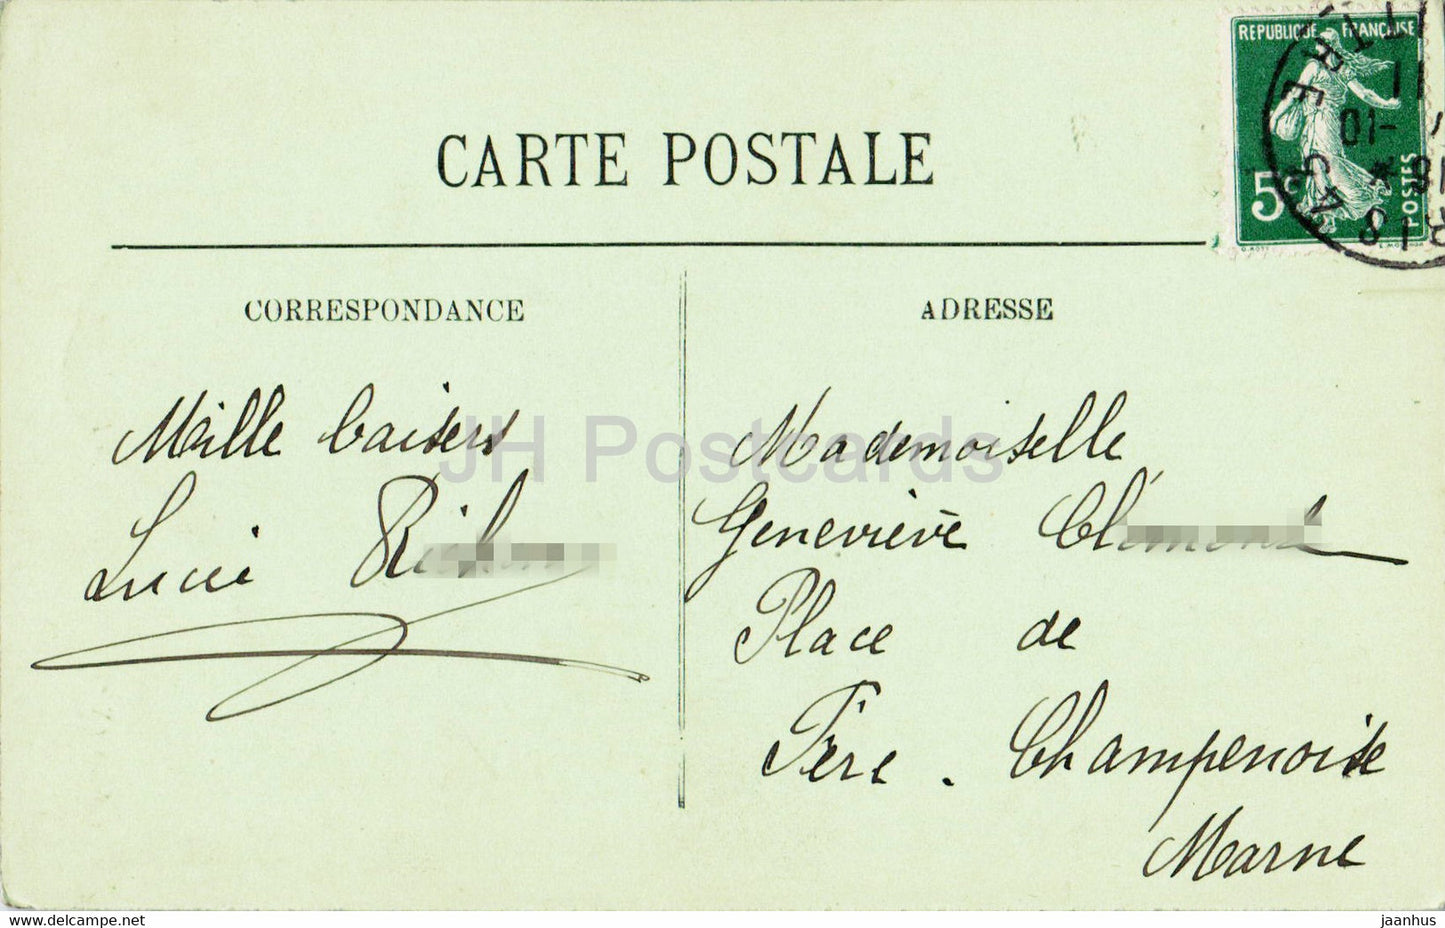 REPUBLIQUE FRANÇAISE
5c
POSTES
CARTE POSTALE
CORRESPONDANCE
ADRESSE
Mille baisers
Lucie
Mademoiselle
Geneviève
Place de
Fère. Champenoise
Marne
JH Postcards
www.delcampe.net
jaanhus